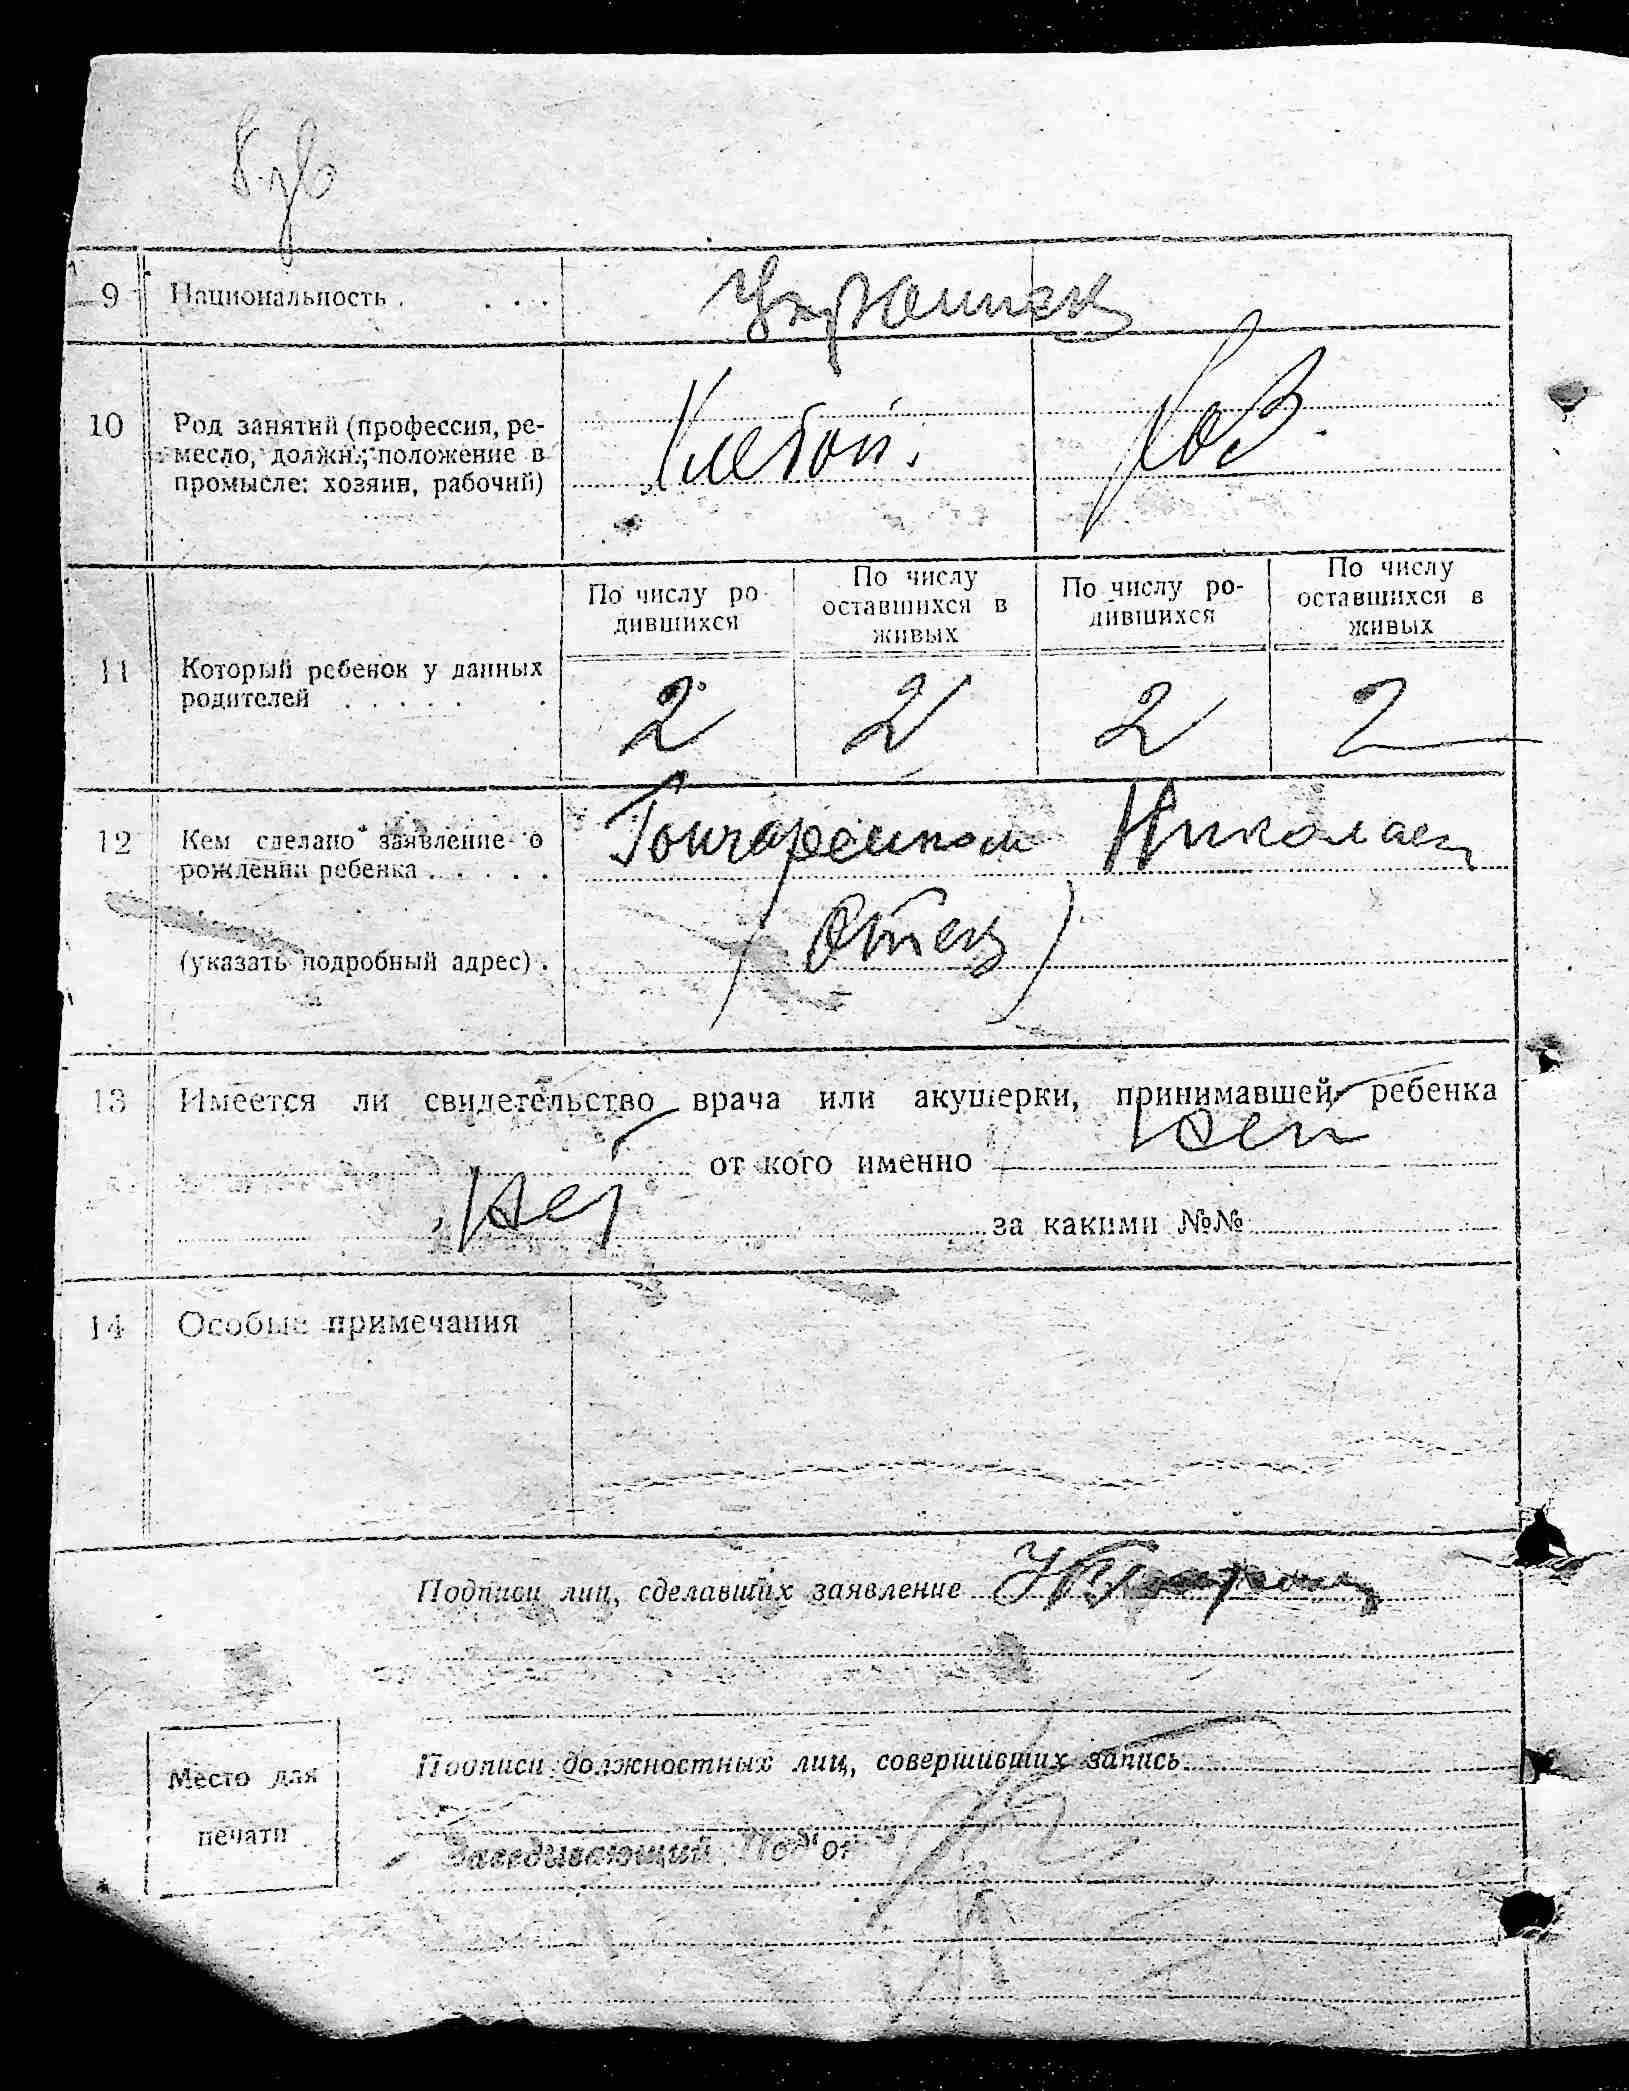 9 Национальность . . . .
Украинск
10 Род занятий (профессия, ре-
месло, должн.; положение в
промысле: хозяин, рабочий)
Хлебоп.
По числу ро-
дившихся
По числу
оставшихся в
живых
По числу ро-
дившихся
По числу
оставшихся в
живых
11 Который ребенок у данных
родителей . . . . . .
2 2 2 2
12 Кем сделано заявление о
рождении ребенка . . . . .
Гончаренком Николаем
(отец)
(указать подробный адрес) .
13 Имеется ли свидетельство врача или акушерки, принимавшей ребенка
Нет
от кого именно
Нет
за какими №№
14 Особые примечания
Подписи лиц, сделавших заявление
Подписи должностных лиц, совершивших запись
Место для
печати
Заведывающий Под'от